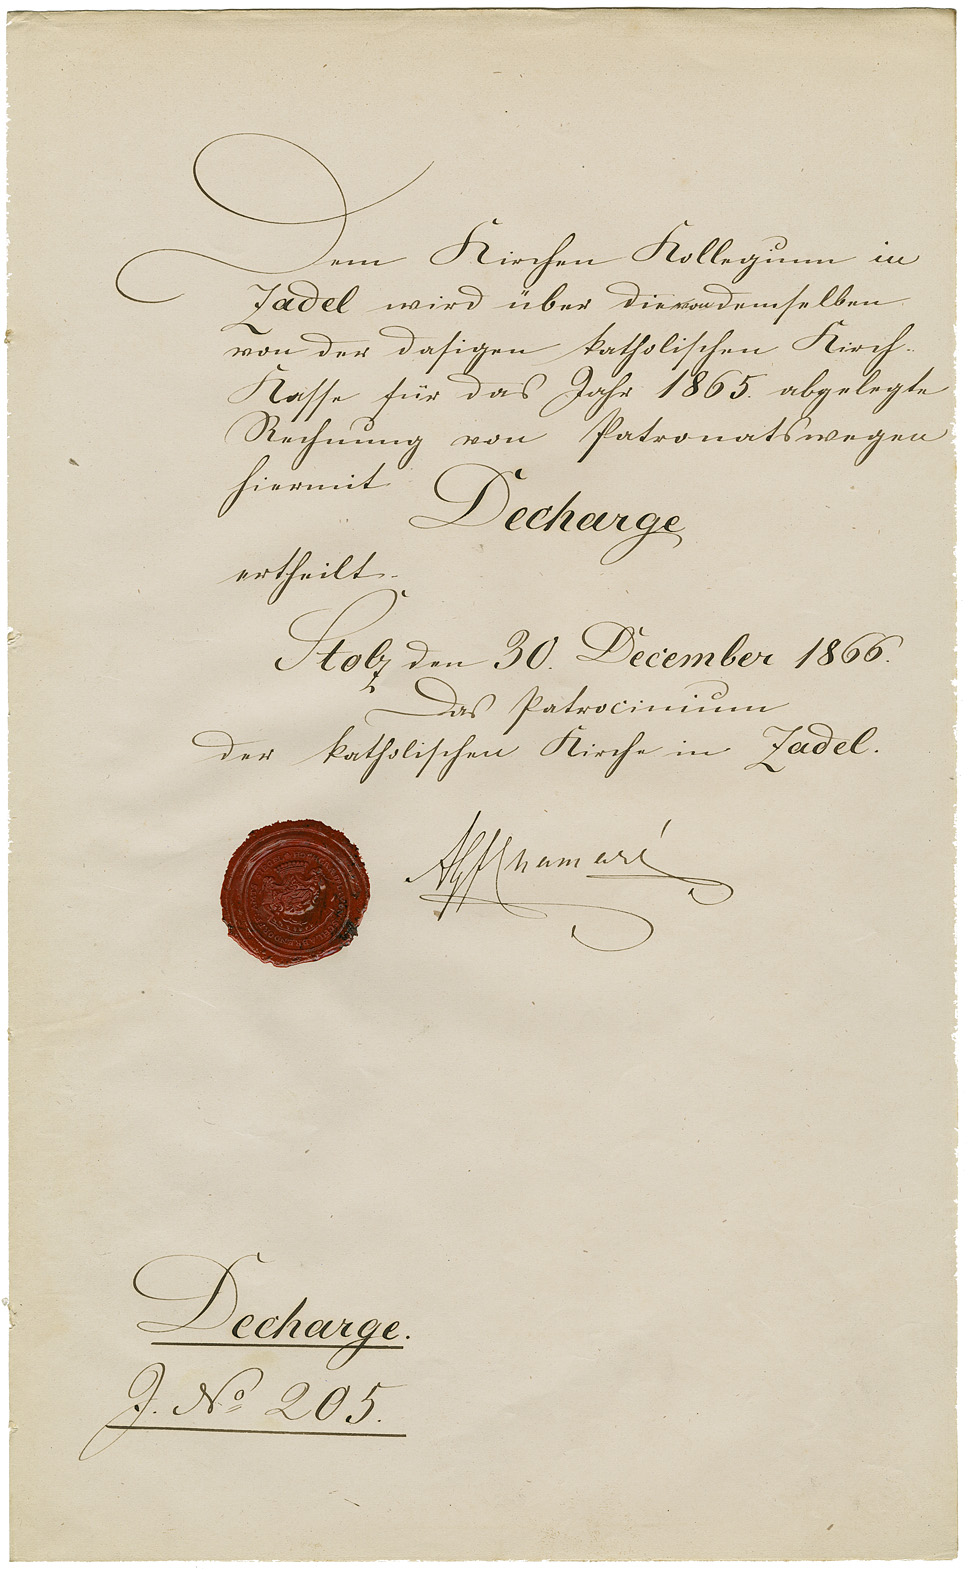 Dem Kirchen Kollegium in
Zadel wird über die von demselben
von der dasigen katholischen Kirch-
Kasse für das Jahr 1865. abgelegte
Rechnung von Patronatswegen
hiermit
Decharge
ertheilt.
Stolz den 30. December 1866.
Das Patrocinium
der katholischen Kirche in Zadel.
Chamaré
Decharge.
J. No 205.